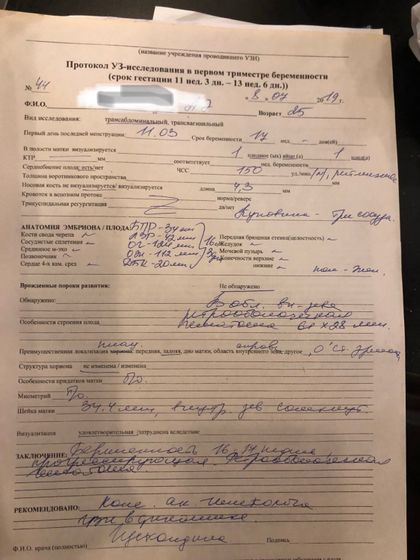 (название учреждения проводившего УЗИ)
Протокол УЗ-исследования в первом триместре беременности
(срок гестации 11 нед. 3 дн. – 13 нед. 6 дн.))
№ 44 8. 07 2019г.
Ф.И.О. Возраст 25
Вид исследования: трансабдоминальный, трансвагинальный
Первый день последней менструации: 11.03 Срок беременности 17 нед.
В полости матки визуализируется 1 плодное (ых) яйцо (а) 1
КТР мм соответствует нед. беременности
Сердцебиение плода есть/нет ЧСС 150 уд./мин
Толщина воротникового пространства мм
Носовая кость не визуализируется/ визуализируется длина 4,3 мм
Кровоток в венозном протоке норма/реверс
Трикуспидальная регургитация да/нет Пуповина - три сосуда
АНАТОМИЯ ЭМБРИОНА / ПЛОДА: БПР-34мм
Кости свода черепа ЛЗР-42мм Передняя брюшная стенка(целостность)
Сосудистые сплетения ОГ-124мм Желудок
Срединное м-эхо ОЖ-112мм Мочевой пузырь
Позвоночник Конечности верхние
Сердце 4-х кам. срез ДБК-20мм нижние
Врожденные пороки развития: Не обнаружено
Обнаружено: В обл. вн. зева
ретрооболочечная
Особенности строения плода гематома х28 мм.
плац.
Преимущественная локализация хориона: передняя, задняя, дно матки, область внутреннего зева, другое "0" ст. зрелости
Структура хориона не изменена / изменена
Особенности придатков матки б/о
Миометрий б/о
Шейка матки 34,4мм, внутр зев сомкнут.
Визуализация удовлетворительная /затруднена вследствие:
ЗАКЛЮЧЕНИЕ: Беременность 16-17 недель,
прогрессирующая. Ретрооболочечная
гематома
РЕКОМЕНДОВАНО: Конс. ак. гинеколога
УЗИ в динамике
Ф.И.О. врача (полностью) Подпись